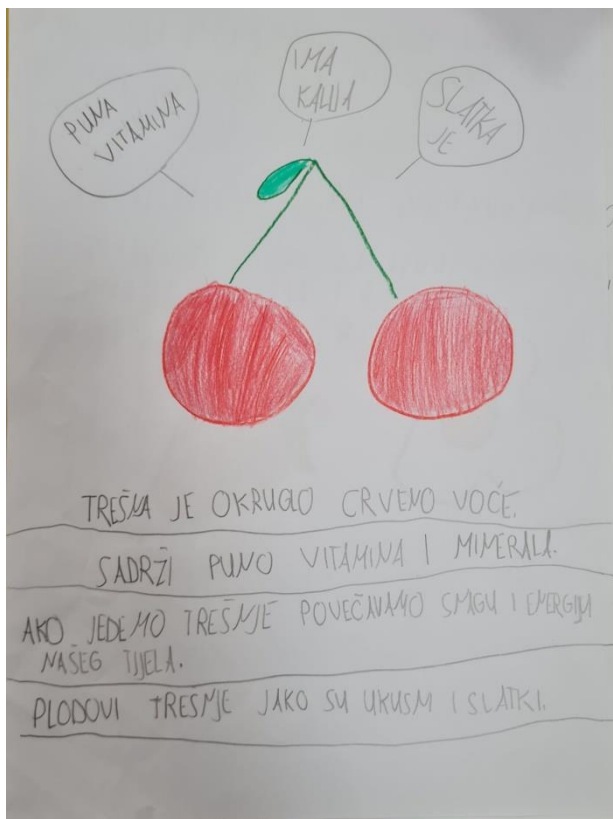 PUNA
VITAMINA
IMA
KALIJA
SLATKA
JE
TREŠNJA JE OKRUGLO CRVENO VOĆE.
SADRŽI PUNO VITAMINA I MINERALA.
AKO JEDEMO TREŠNJE POVEČAVAMO SNAGU I ENERGIJU
NAŠEG TIJELA.
PLODOVI TREŠNJE JAKO SU UKUSNI I SLATKI.